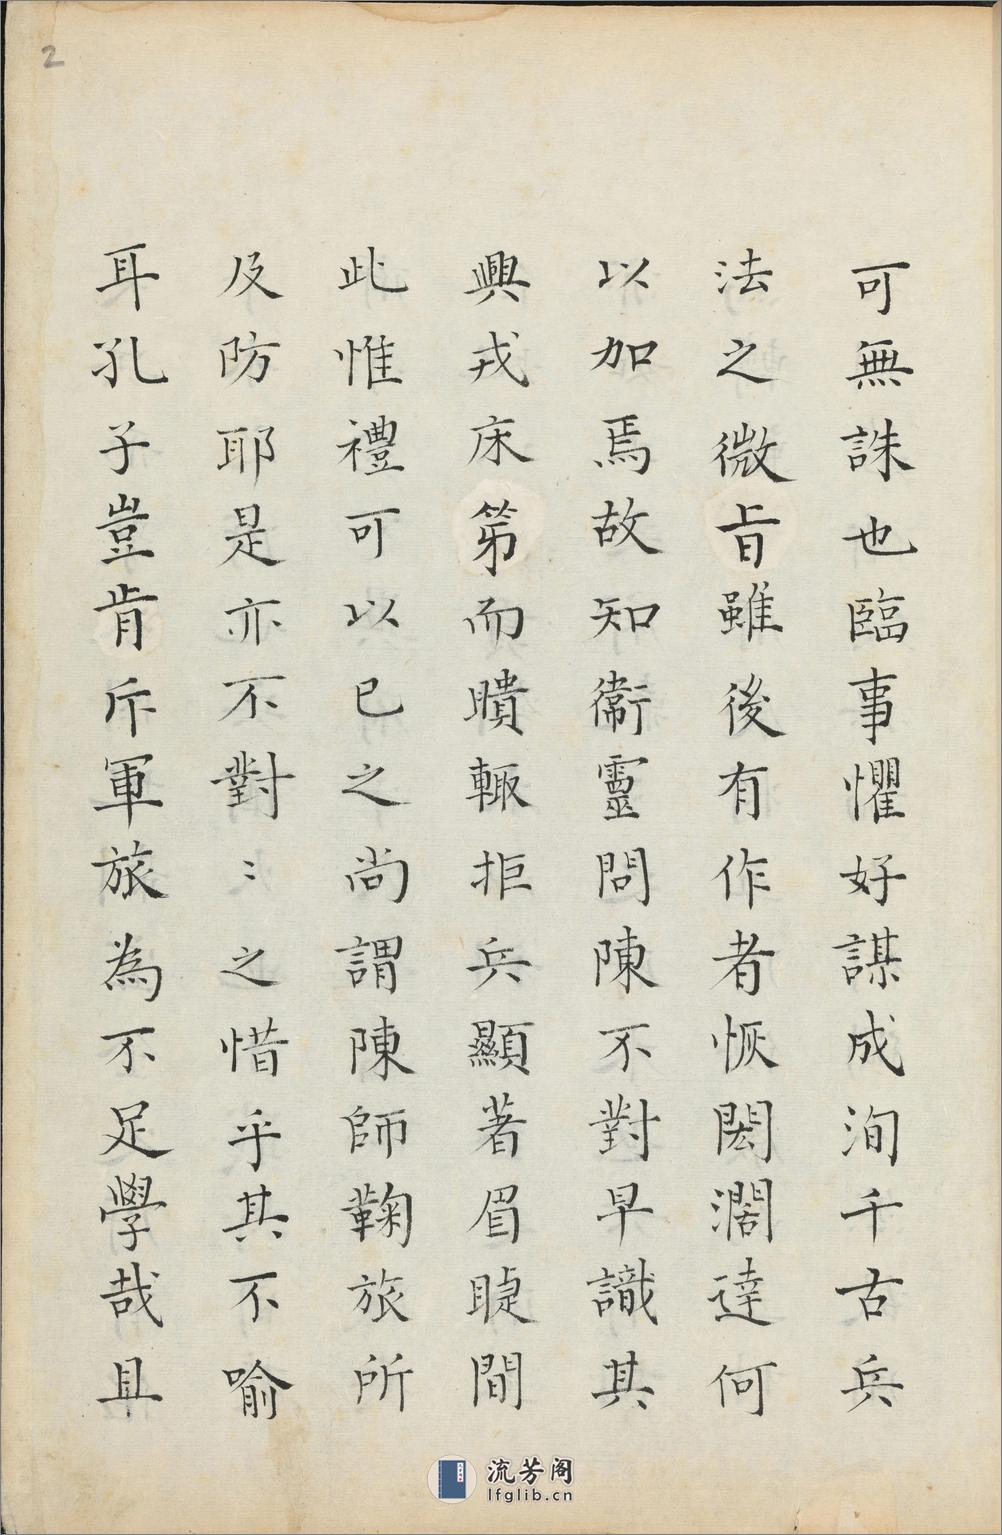 可無誅也臨事懼好謀成洵千古兵
法之微旨雖後有作者恢閎濶達何
以加焉故知衛靈問陳不對早識其
興戎床笫而瞶輙拒兵顯著眉睫間
此惟禮可以已之尚謂陳師鞠旅所
及防耶是亦不對〻之惜乎其不喻
耳孔子豈肯斥軍旅為不足學哉且
2
流芳阁
lfglib.cn